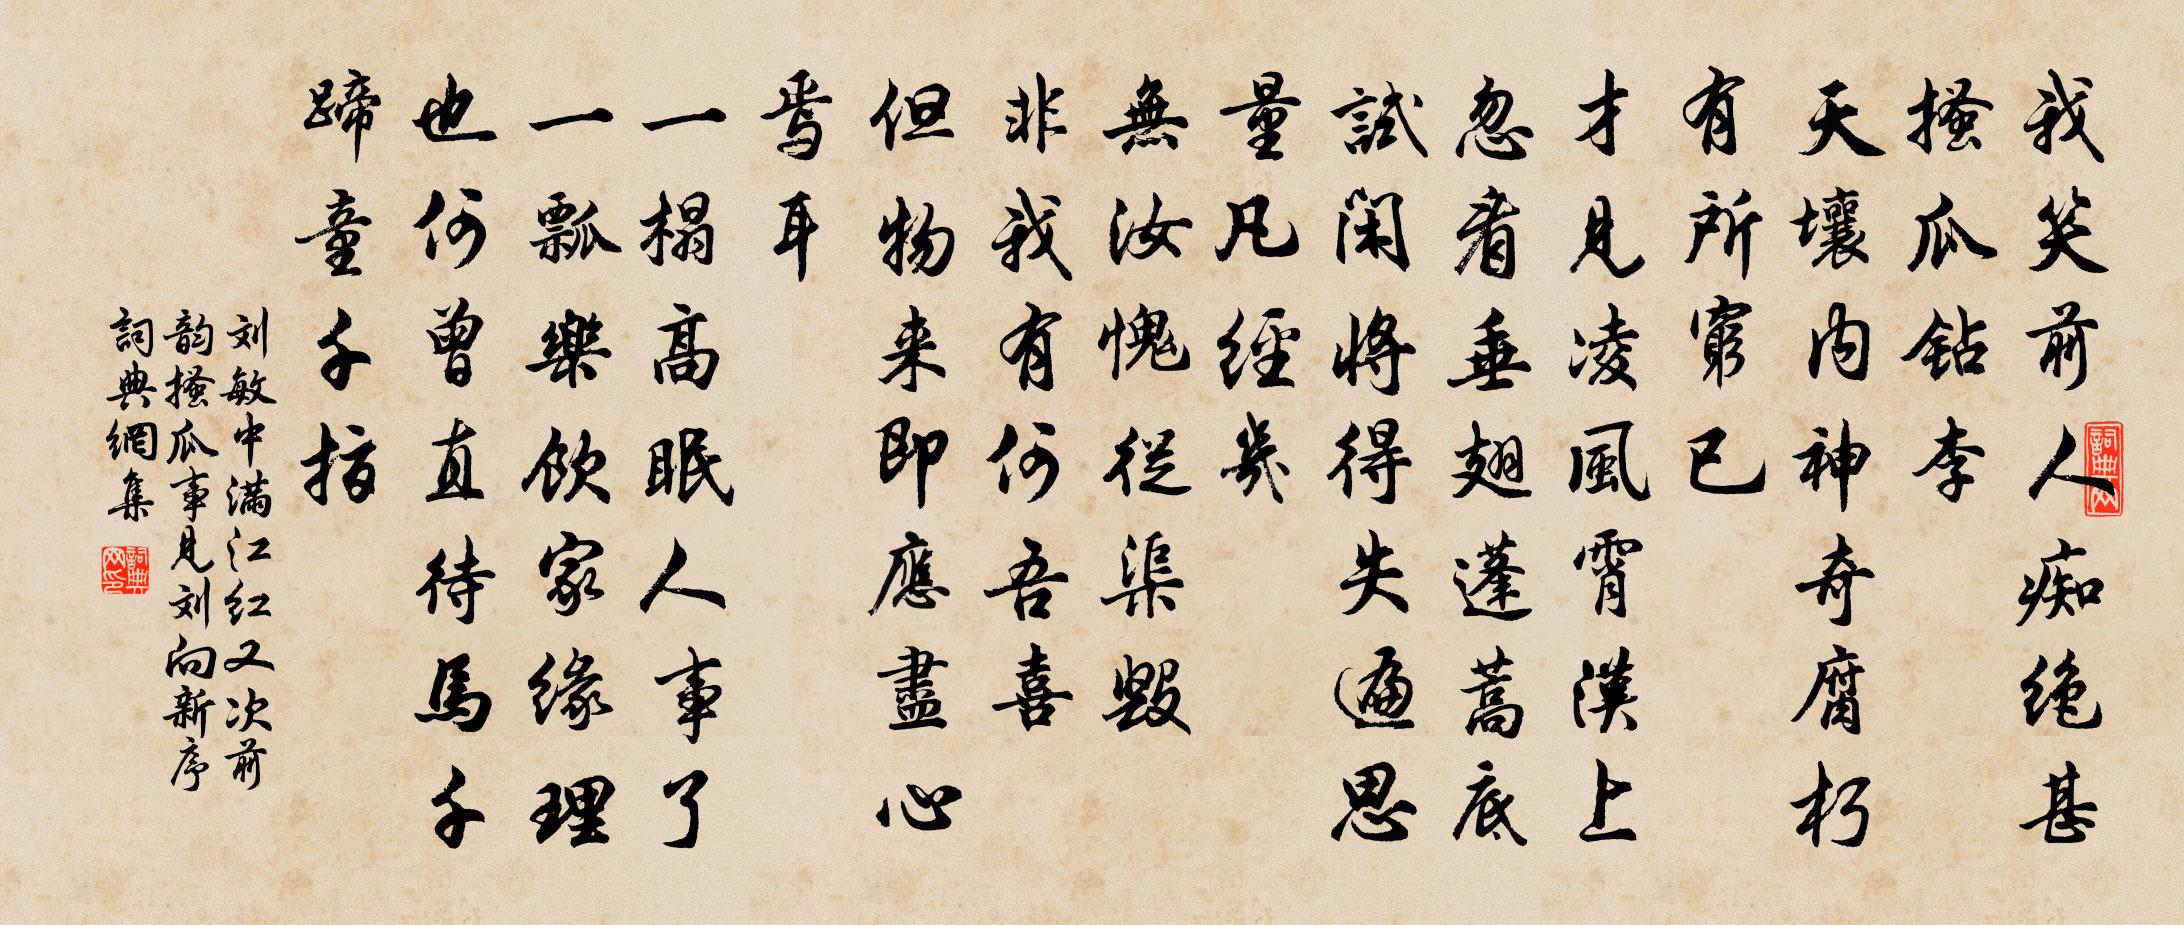 我笑前人痴绝甚
搔瓜钻李
天壤内神奇腐朽
有所窮已
才見凌風霄漢上
忽看垂翅蓬蒿底
試閑將得失遍思
量凡經幾
無汝愧從渠毀
非我有何吾喜
但物来即應盡心
焉耳
一榻高眠人事了
一瓢樂飲家缘理
也何曾直待馬千
蹄童千指
刘敏中满江红又次前
韵搔瓜事見刘向新序
詞典網集
詞典网
詞典网印